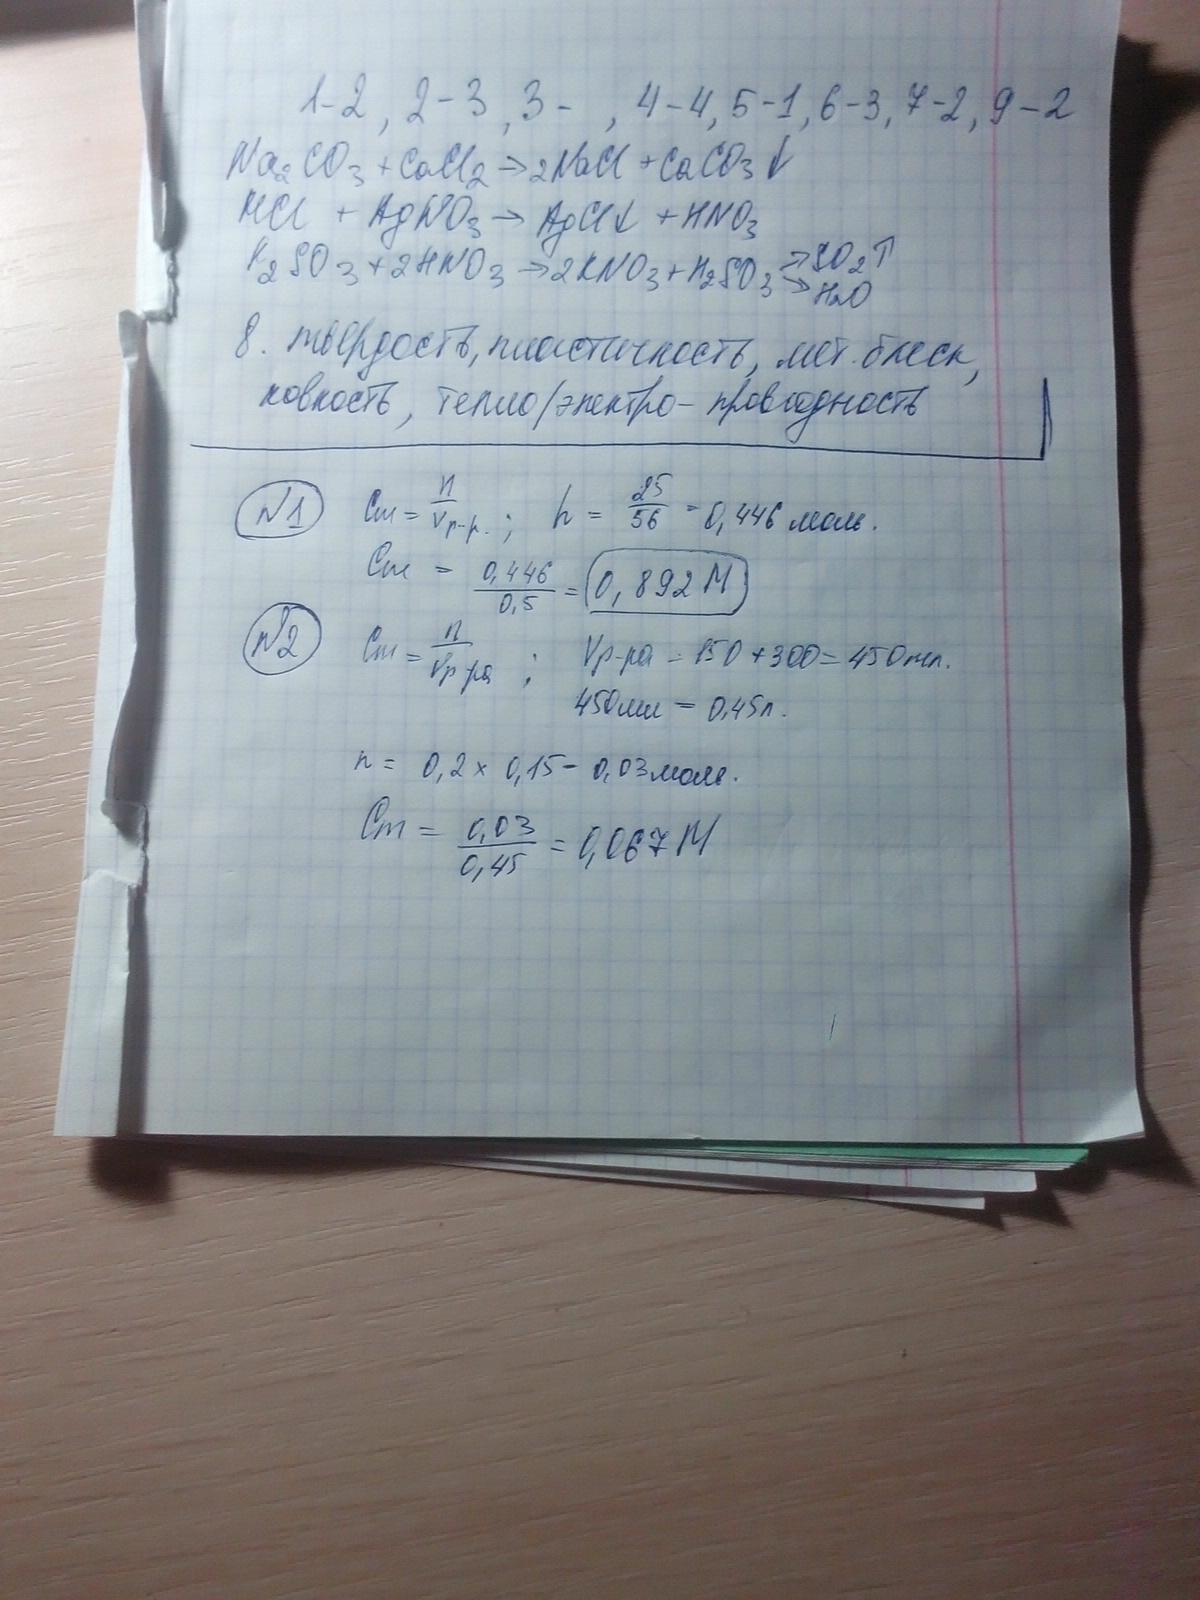 1-2, 2-3, 3- , 4-4, 5-1, 6-3, 7-2, 9-2
Na₂CO₃ + CaCl₂ → 2NaCl + CaCO₃↓
HCl + AgNO₃ → AgCl↓ + HNO₃
K₂SO₃ + 2HNO₃ → 2KNO₃ + H₂SO₃ → SO₂↑
→ H₂O
8. твёрдость, пластичность, мет. блеск,
ковкость, тепло/электро-проводность
N1 Cm = n/Vр-р. ; n = 25/56 = 0,446 моль.
Cm = 0,446/0,5 = 0,892 M
N2 Cm = n/Vр-ра ; Vр-ра = 150 + 300 = 450 мл.
450 мл = 0,45 л.
n = 0,2 × 0,15 = 0,03 моль.
Cm = 0,03/0,45 = 0,067 M